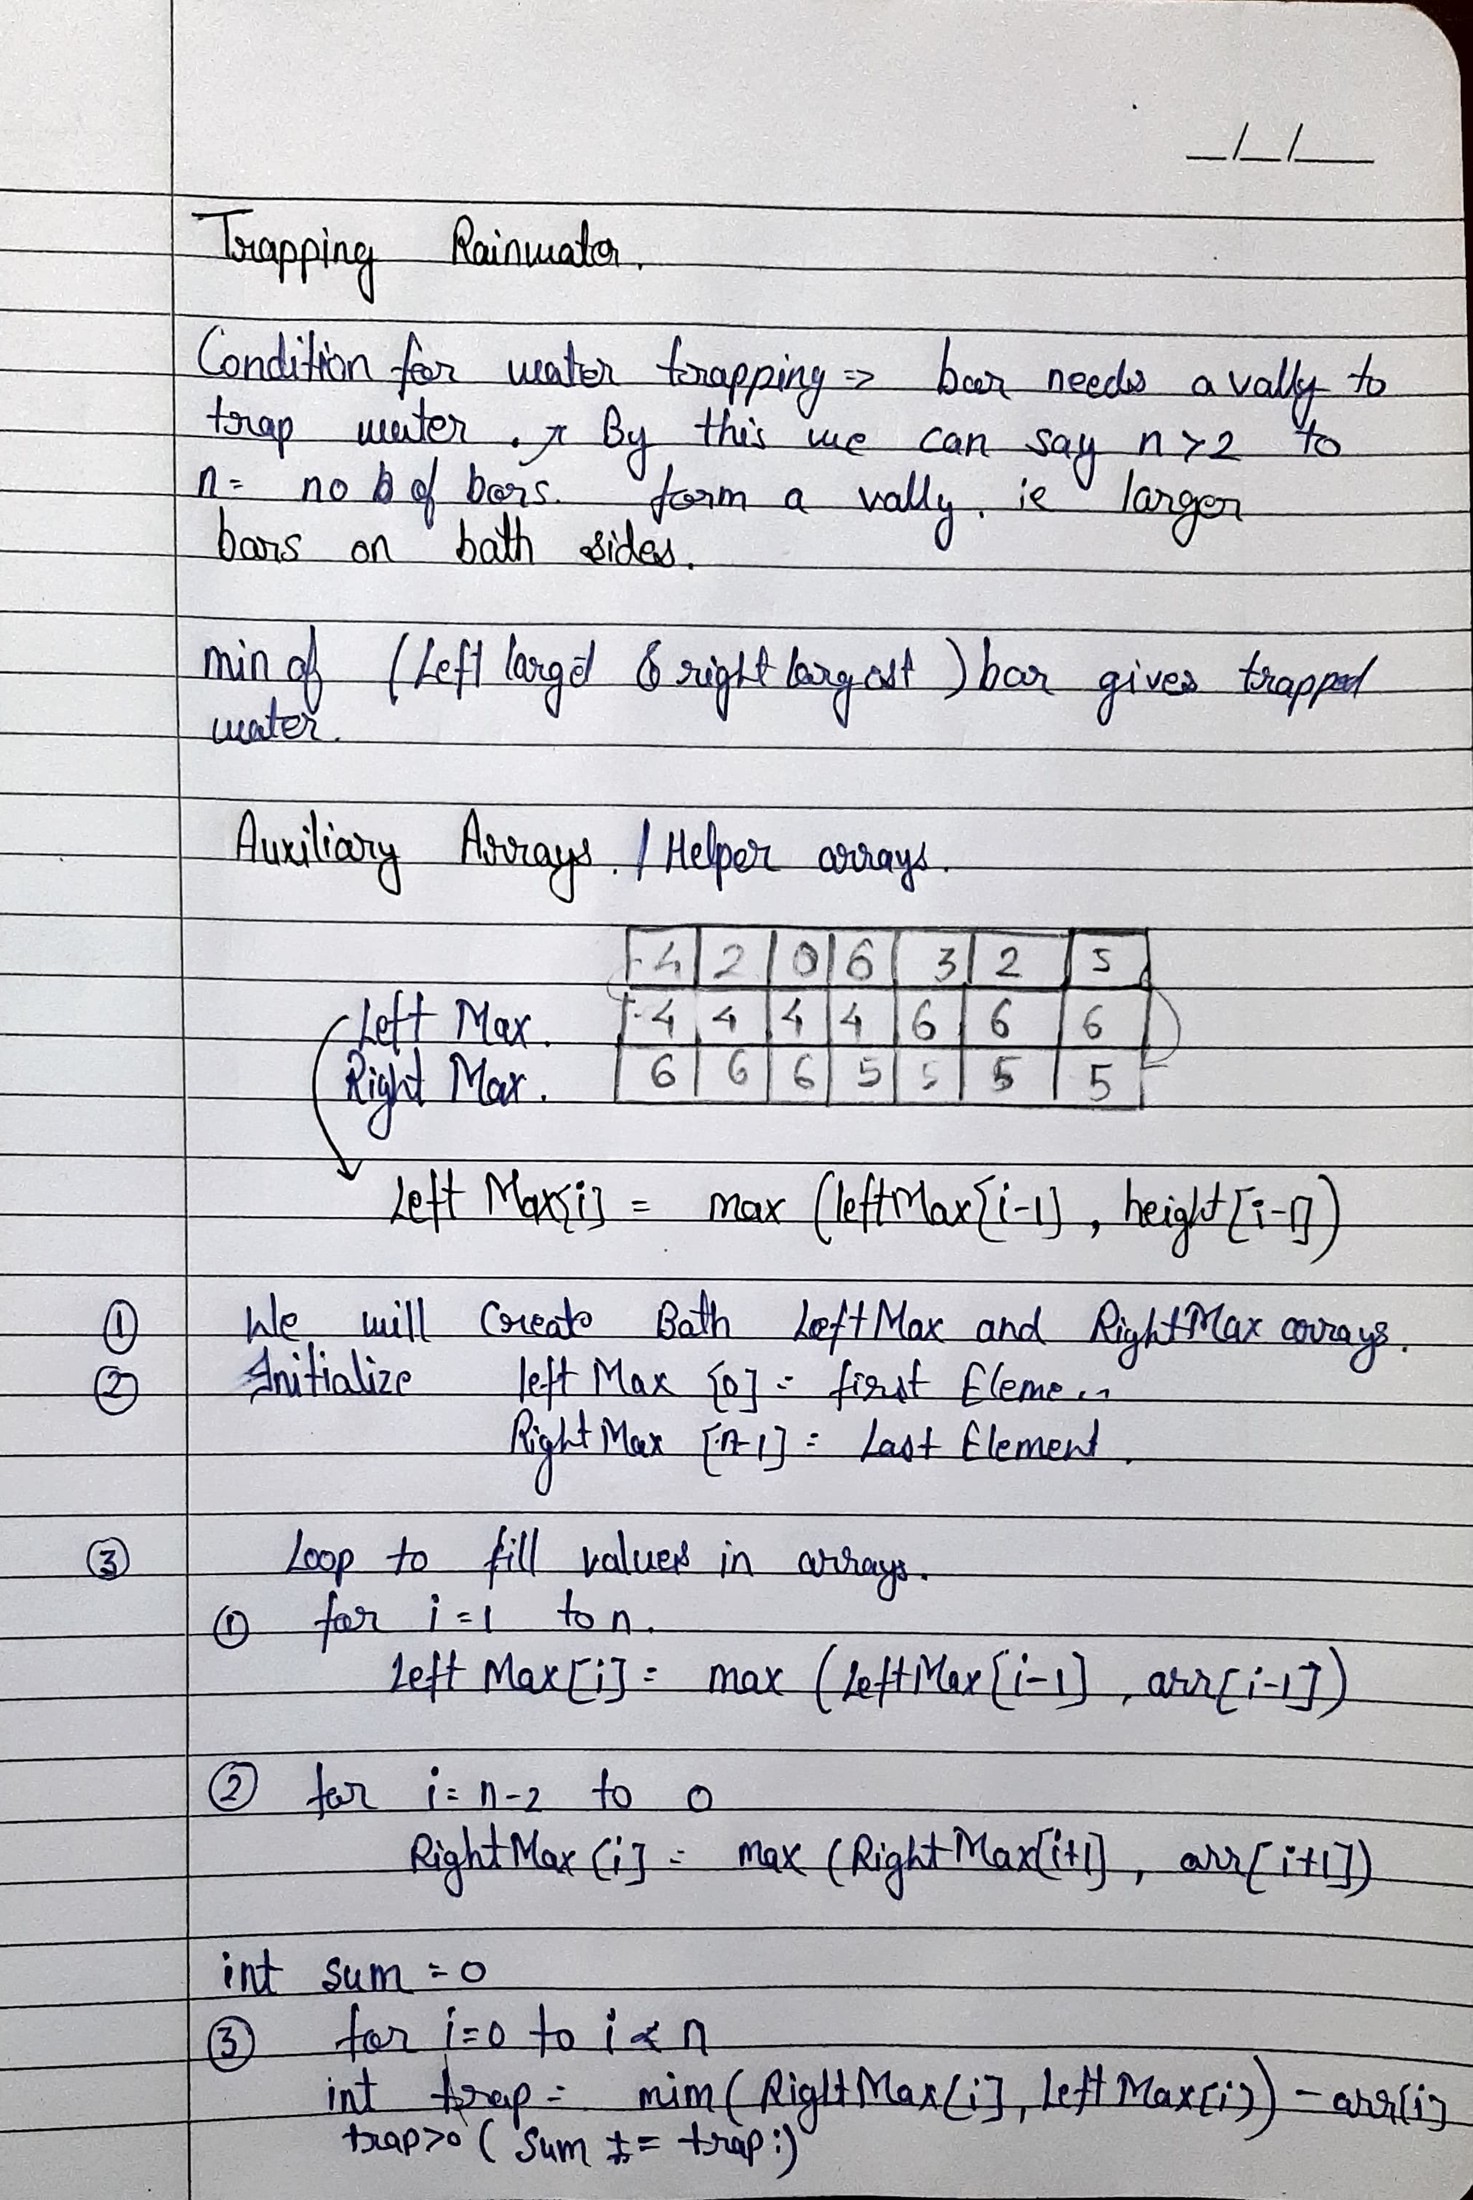 _/_/__
Trapping Rainwater.
Condition for water trapping => bar needs a vally to
trap water . ↗ By this we can say n>2 to
n = no of bars. form a vally. ie larger
bars on both sides.
min of (Left larg & right largest) bar gives trapped
water.
Auxiliary Arrays. / Helper arrays.
4 2 0 6 3 2 5
Left Max. 4 4 4 4 6 6 6
Right Max. 6 6 6 5 5 5 5
Left Max[i] = max (leftMax[i-1] , height[i-1])
① We will Create Both LeftMax and RightMax arrays.
② Initialize left Max [0] = first Eleme
Right Max [n-1] = Last Element.
③ Loop to fill values in arrays.
① for i=1 to n.
Left Max[i] = max (LeftMax[i-1] , arr[i-1])
② for i = n-2 to 0
RightMax [i] = max (RightMax[i+1] , arr[i+1])
int sum = 0
③ for i=0 to i < n
int trap = mim( RightMax[i], Left Max[i]) - arr[i]
trap>0 ( Sum += trap;)